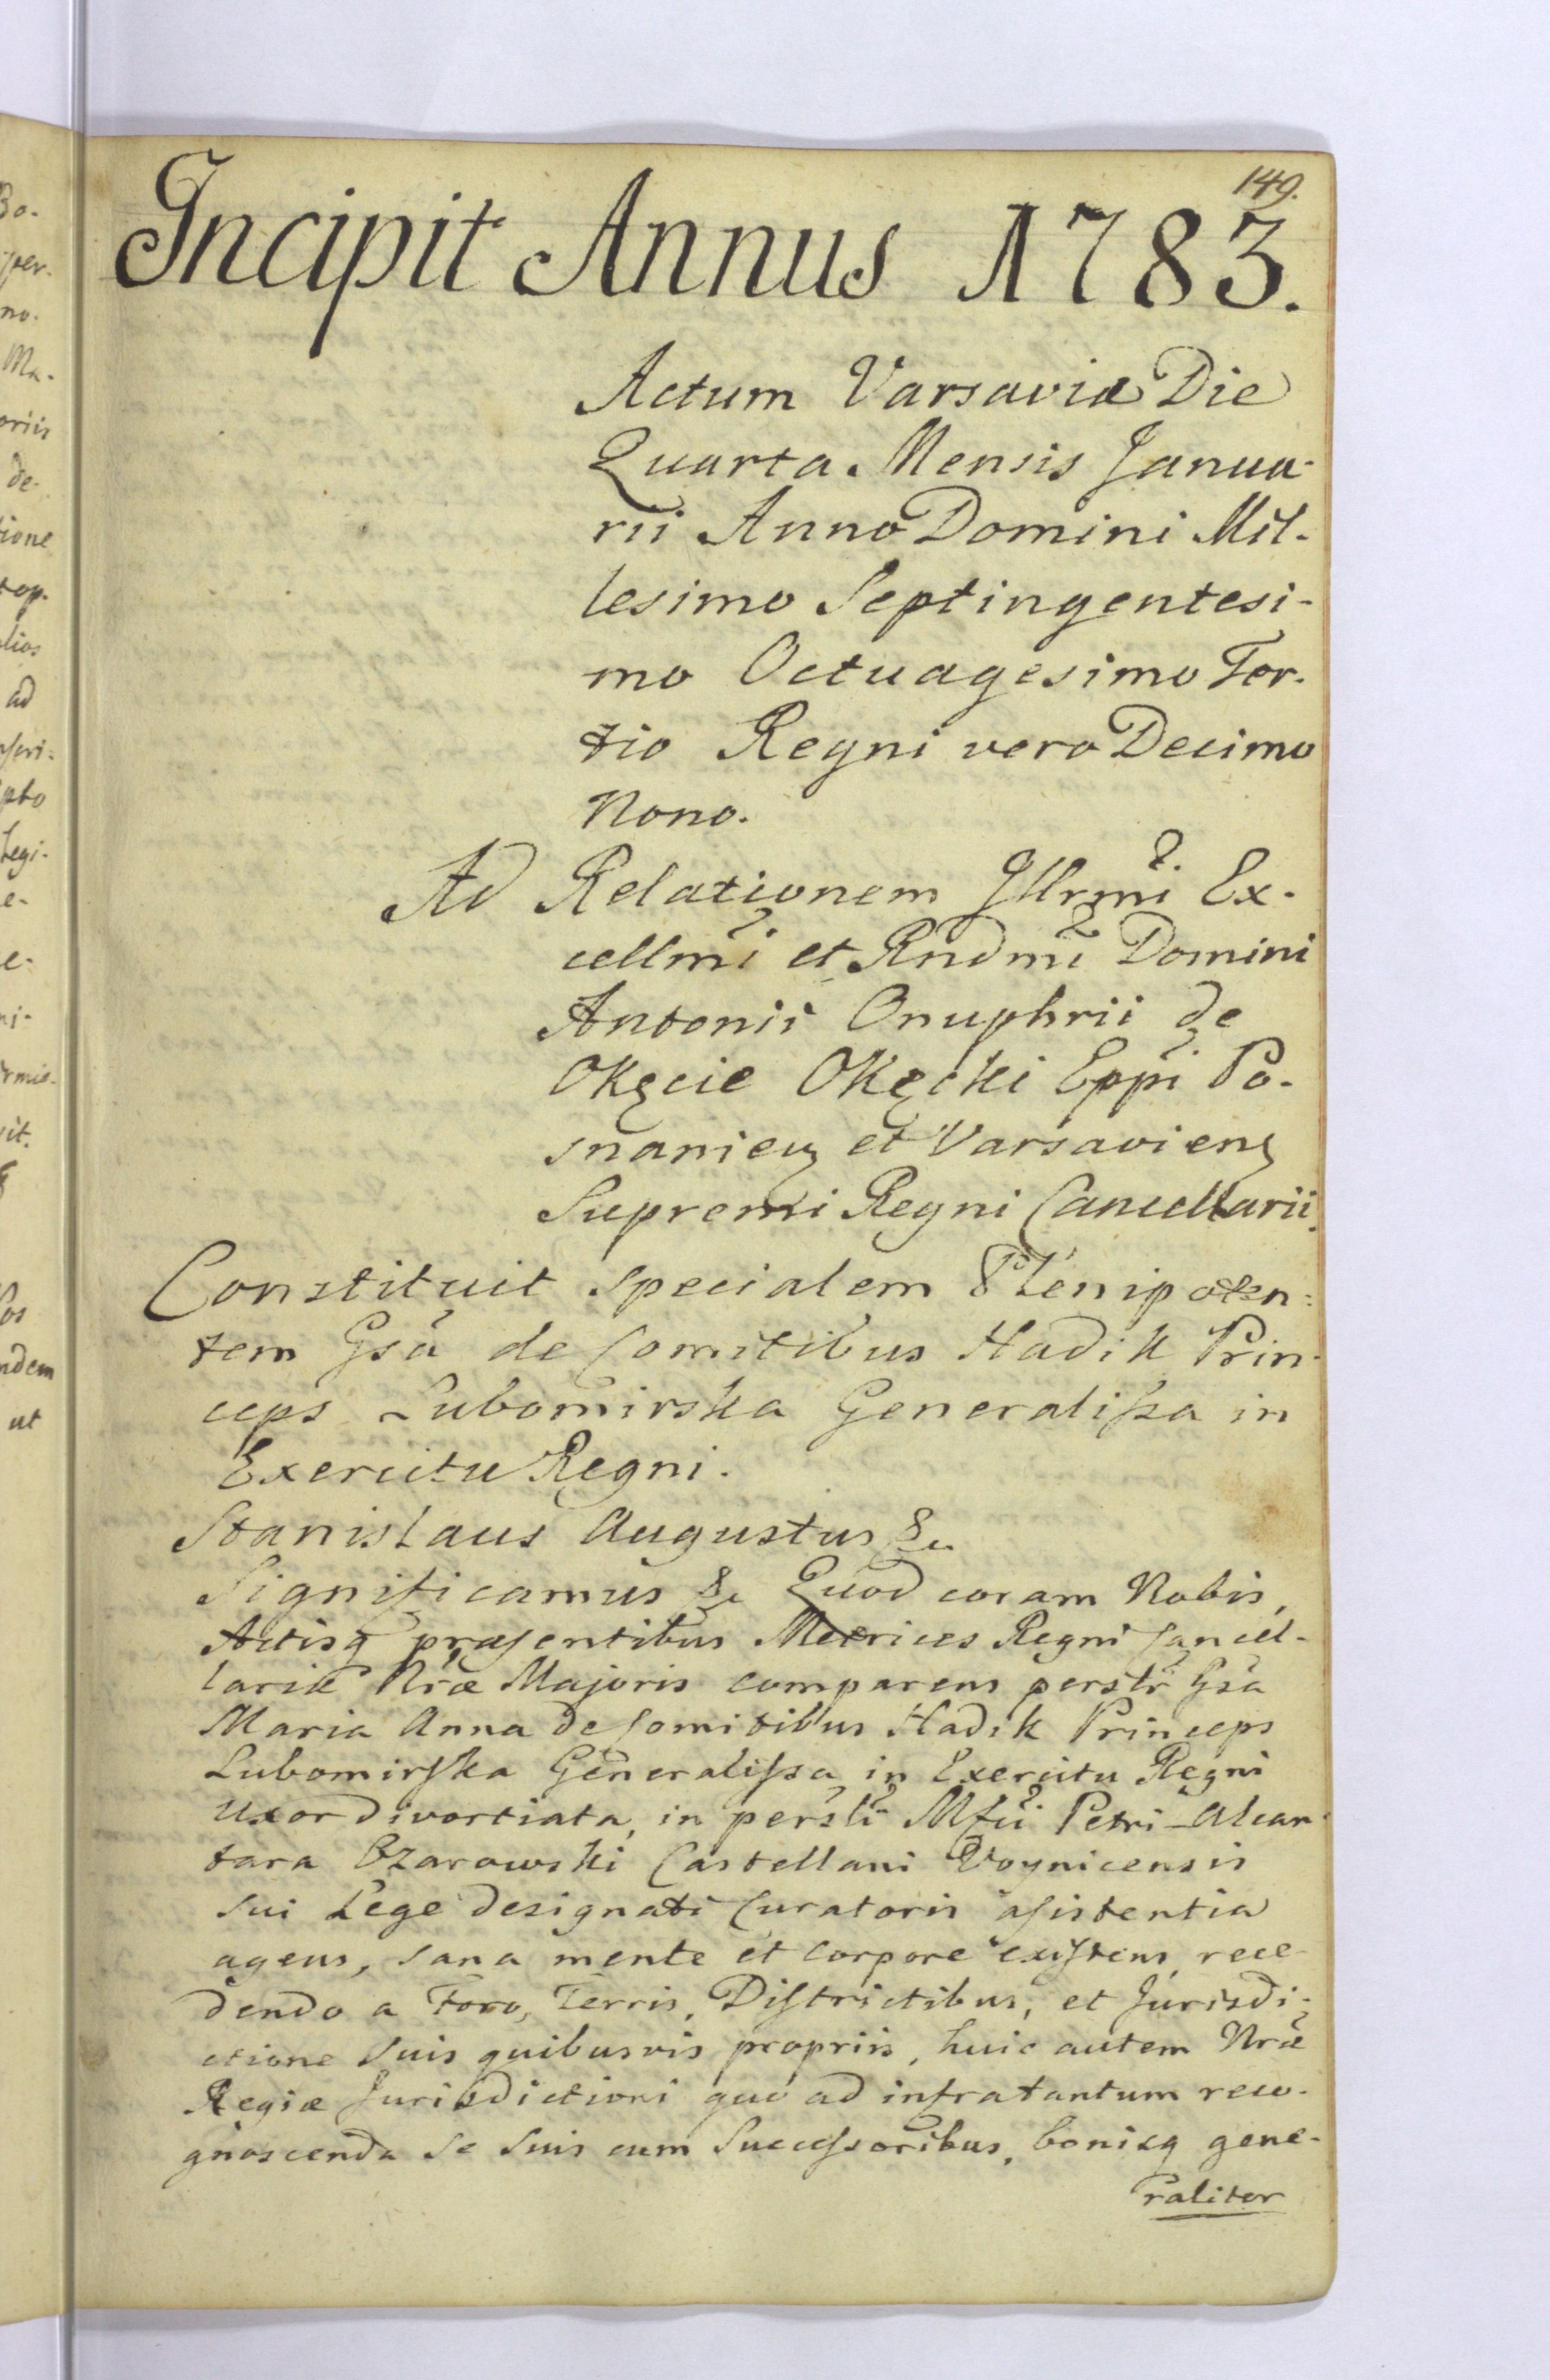 149.
Incipit Annus 1783.
Actum Varsaviæ Die
Quarta Mensis Janua-
rii Anno Domini Mil-
lesimo Septingentesi-
mo Octuagesimo Ter-
tio Regni vero Decimo
Nono.
Ad Relationem Illrmi Ex-
cellmi et Rndmi Domini
Antonii Onuphrii de
Okęcie Okęcki Eppi Po-
snanien et Varsavien
Supremi Regni Cancellarii.
Constituit specialem Plenipoten:
tem Gsa de Comitibus Hadik Prin-
ceps Lubomirska Generalissa in
Exercitu Regni.
Stanislaus Augustus &c
Significamus &c Quod coram Nobis,
Actisq præsentibus Metrices Regni Cancel-
lariæ Nræ Majoris comparens perslr Gsa
Maria Anna de Comitibus Hadik Princeps
Lubomirska Generalissa in Exercitu Regni
Uxor divortiata, in persli Mfci Petri Alcan-
tara Ożarowski Castellani Voynicensis
sui Lege designati Curatoris assistentia
agens, sana mente et corpore existens, rece-
dendo a Foro, Terris, Districtibus, et Jurisdi-
ctione suis quibusvis propriis, huic autem Nræ
Regiæ Jurisdictioni quo ad infra tantum reco-
gnoscenda se suis cum Successoribus, bonisq gene-
raliter